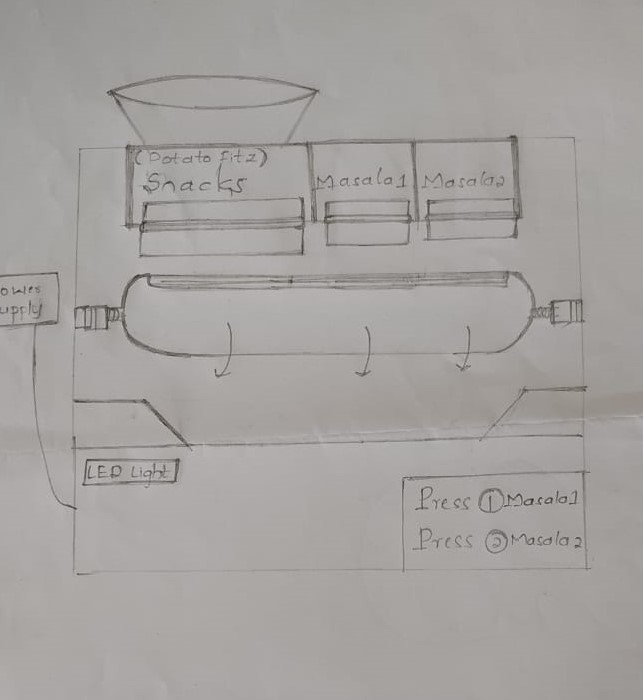 (Potato fitz)
Snacks
Masala1
Masala2
ower
upply
LED Light
Press ① Masala1
Press ② Masala2